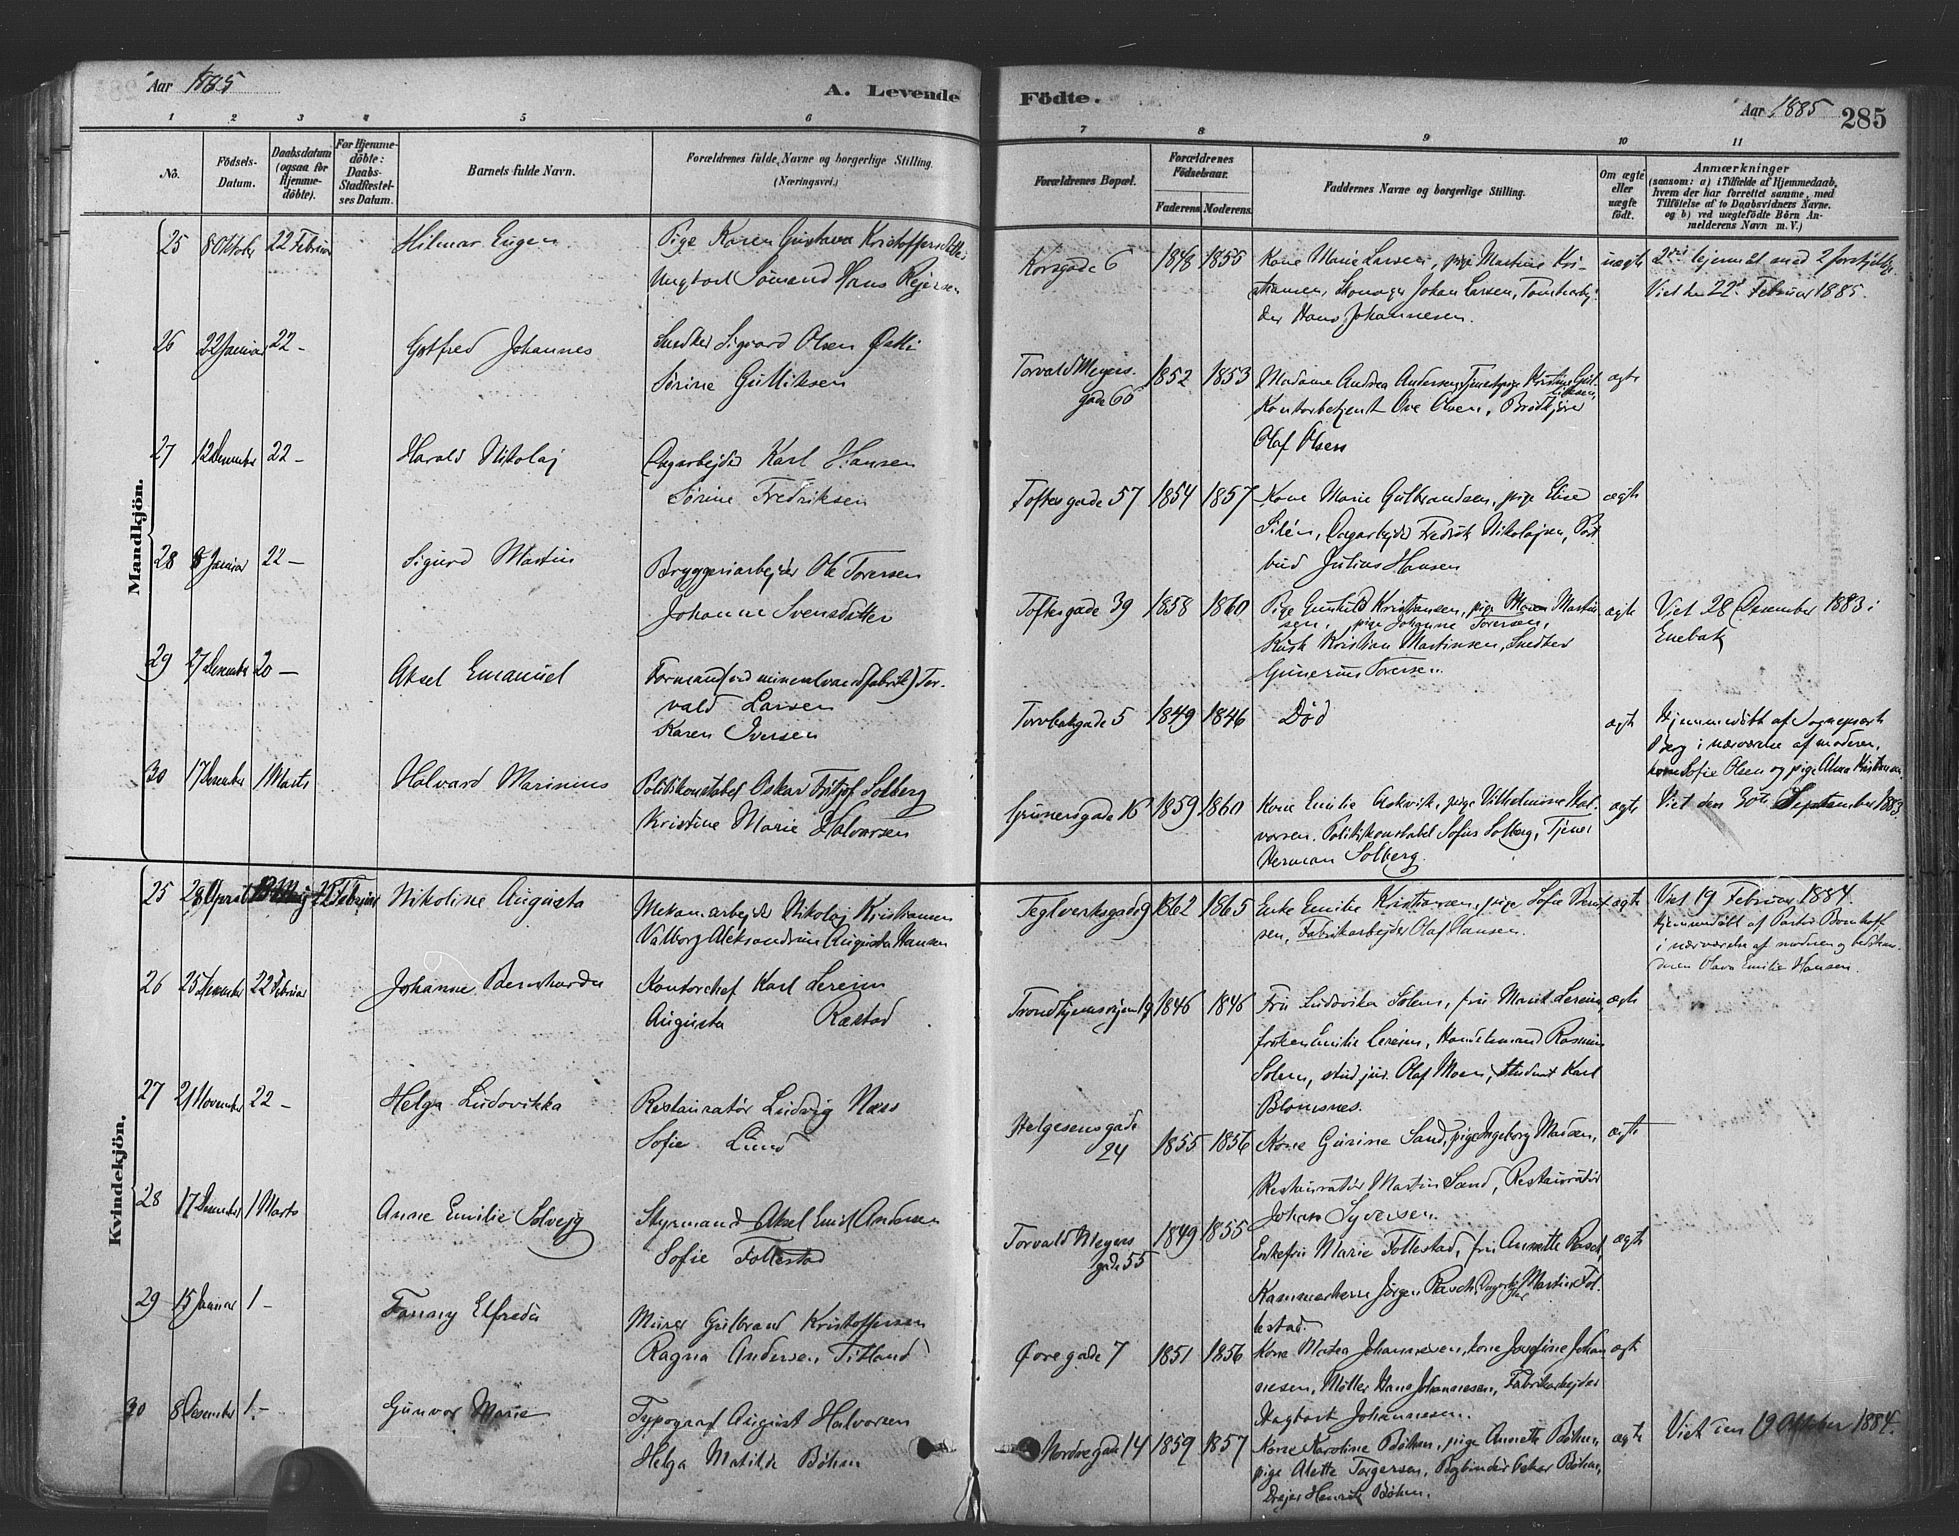 Aar 1885
A. Levende
Födte.
Aar 1885
285
1 2 3 4 5 6 7 8 9 10 11
No.
Födsels-
Datum.
Daabsdatum
(ogsaa for
Hjemme-
döbte).
For Hjemme-
döbte:
Daabs-
Stadfæstel-
ses Datum.
Barnets fulde Navn.
Forældrenes fulde Navne og borgerlige Stilling.
(Næringsvei.)
Forældrenes Bopæl.
Forældrenes
Födselsaar.
Faderens. Moderens.
Faddernes Navne og borgerlige Stilling.
Om ægte
eller
uægte
födt.
Anmærkninger
(saasom: a) i Tilfælde af Hjemmedaab,
hvem der har forrettet samme, med
Tilföielse af to Daabsvidners Navne,
og b) ved uægtefödte Börn An-
melderens Navn m. V.)
Mandkjön.
25 8 Oktober 22 Februar Hilmar Eugen
Pige Karen Gustava Kristoffersdatter
Ungkarl Sömand Hans Rejersen
Korsgade 6 1848 1855
Kone Marie Larsen, pige Martine Kri-
stiansen, Skomager Johan Larsen, Tomtearbej-
der Hans Johannesen.
uægte
2det lejermål med 2 forskjellige
Viet den 22d Februar 1885.
26 22 Januar 22 – Gotfred Johannes
Snedker Sigvard Olsen Østli
Sörine Gulliksen
Torvald Meyers-
gade 60
1852 1853
Madame Andrea Andersen, Tjenestepige Kristine Gul-
liksen,
Kontorbetjent Ove Olsen, Brödkjörer
Olaf Olsen
ægte
27 12 Desember 22 – Harald Nikolaj
Dagarbejder Karl Hansen
Sörine Fredriksen
Toftesgade 57 1854 1857
Kone Marie Gulbrandsen, pige Elise
Silén, Dagarbejder Fredrik Nikolajsen, Post-
bud Julius Hansen
ægte
28 8 Januar 22 – Sigurd Martin
Bryggeriarbejder Ole Toresen
Johanne Svensdatter
Toftesgade 39 1858 1860
Pige Gunhild Kristiansen, pige Maren Martin-
sen, pige Johanne Toresen,
Kusk Kristian Martinsen, Snedker
Gunerius Toresen.
ægte
Viet 28 Desember 1883 i
Enebak
29 27 Desember 20 – Aksel Emanuel
Formand (ved mineralvandfabrik) Tor-
vald Larsen
Karen Iversen
Torvbakgade 5 1849 1846
Död
ægte
Hjemmedöbt af Sogneprest
Berg i nærværelse af moderen,
kone Sofie Olsen og pige Alma Kristiansen.
30 17 Desember 1 Marts Halvard Marinius
Politikonstabel Oskar Fritjof Solberg
Kristine Marie Halvorsen
Grünersgade 16 1859 1860
Kone Emilie Askvik, pige Vilhelmine Hal-
vorsen, Politikonstabel Sofus Solberg, Tjener
Herman Solberg.
ægte
Viet den 30te September 1883.
Kvindekjön.
25 28 22 Februar Nikoline Augusta
Mekan. arbejder Nikolaj Kristiansen
Valborg Aleksandrine Augusta Hansen
Teglverksgade 9 1862 1865
Enke Emilie Kristiansen, pige Sofie
sen, Fabrikarbejder Olaf Hansen.
ægte
Viet 19 Februar 1884.
Hjemmedöbt af Pastor
i nærværelse af moderen og bedstemo-
deren Olava Emilie Hansen.
26 25 Desember 22 Februar Johanne Bernharda
Kontorchef Karl Lereim
Augusta Ræstad
Trondhjemsvejen 19 1846 1846
Fru Ludovika Solem, fru Marit Lereim,
fröken Emilie Lereim, Handelsmand Rasmus
Solem, stud. jur. Olaf Moen, student Karl
Blomsnes.
ægte
27 21 November 22 – Helga Ludovikka
Restauratör Ludvig Næss
Sofie Lund
Helgesensgade
24
1855 1856
Kone Gurine Sand, pige Ingeborg Madsen,
Restauratör Martin Sand, Restauratör
Johan Syversen.
ægte
28 17 Desember 1 Marts Anne Emilie Solvejg
Styrmand Aksel Emil Andersen
Sofie Follestad
Torvald Meyers
gade 55
1849 1855
Enkefru Marie Follestad, fru Annette Rasch,
Kammerherre Jörgen Rasch, Martin Fol-
lestad.
ægte
29 15 Januar 1 – Fanny Elfreda
Murer Gulbrand Kristoffersen
Ragna Andersen Titland
Övregade 7 1851 1856
Kone Matea Johannessen, kone Josefine Johan-
nesen, Möller Hans Johannesen, Fabrikarbejder
Hagbart Johannesen.
ægte
30 8 Desember 1. – Gunvor Marie
Typograf August Halvorsen
Helga Matilde Böhm
Nordregade 14 1859 1857
Kone Karoline Böhm, pige Annette Böhm,
pige Alette Torgersen, Bogbinder Böhm,
Drejer Henrik Böhm.
ægte
Viet den 19 Oktober 1884.